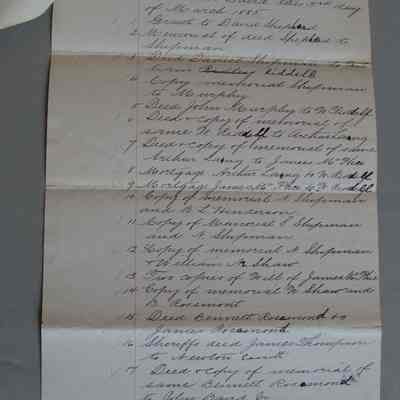 dated this 2nd day
of March 1885.
1 Grant to David Shephard
2 Memorial of deed Shephard to
Shipman
3 Deed Daniel Shipman to
Riddell
4 Copy memorial Shipman
to Murphy
5 Deed John Murphy to W Riddell
6 Deed & copy of memorial of
same W. Riddell to Arthur Laing
7 Deed & copy of memorial of same
Arthur Laing to James McPhee
8 Mortgage Arthur Laing to W Riddell
9 Mortgage James McPhee to W Riddell
10 Copy of memorial N Shipman
and N L Henderson
11 Copy of Memorial S Shipman
and N Shipman
12 Copy of memorial N Shipman
& William M Shaw
13 Two copies of Will of James McPhee
14 Copy of memorial W Shaw and
B Rosemont
15 Deed Bennett Rosamond to
James Rosamond
16 Sheriffs deed James Thompson
to Newton
17 Deed & copy of memorial of
same Bennett Rosamond
to John Baird Jr